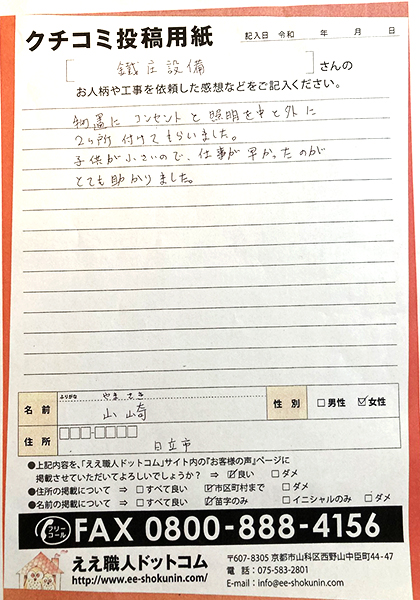 クチコミ投稿用紙
記入日 令和 年 月 日
[ 鐵庄設備 ] さんの
お人柄や工事を依頼した感想などをご記入ください。
物置に コンセントと 照明を中と外に
2ヶ所 付けてもらいました。
子供が小さいので、仕事が 早かったのが
とても助かりました。
ふりがな やま さき
名前 山﨑
性別 □男性 ☑女性
住所 □□□-□□□□
日立市
●上記内容を、「ええ職人ドットコム」サイト内の『お客様の声』ページに
掲載させていただいてよろしいでしょうか? ⇒ ☑良い □ダメ
●住所の掲載について ⇒ □すべて良い ☑市区町村まで □ダメ
●名前の掲載について ⇒ □すべて良い ☑苗字のみ □イニシャルのみ □ダメ
フリーコール FAX 0800-888-4156
ええ職人ドットコム
http://www.ee-shokunin.com/
〒607-8305 京都市山科区西野山中臣町44-47
電 話:075-583-2801
E-mail:info@ee-shokunin.com